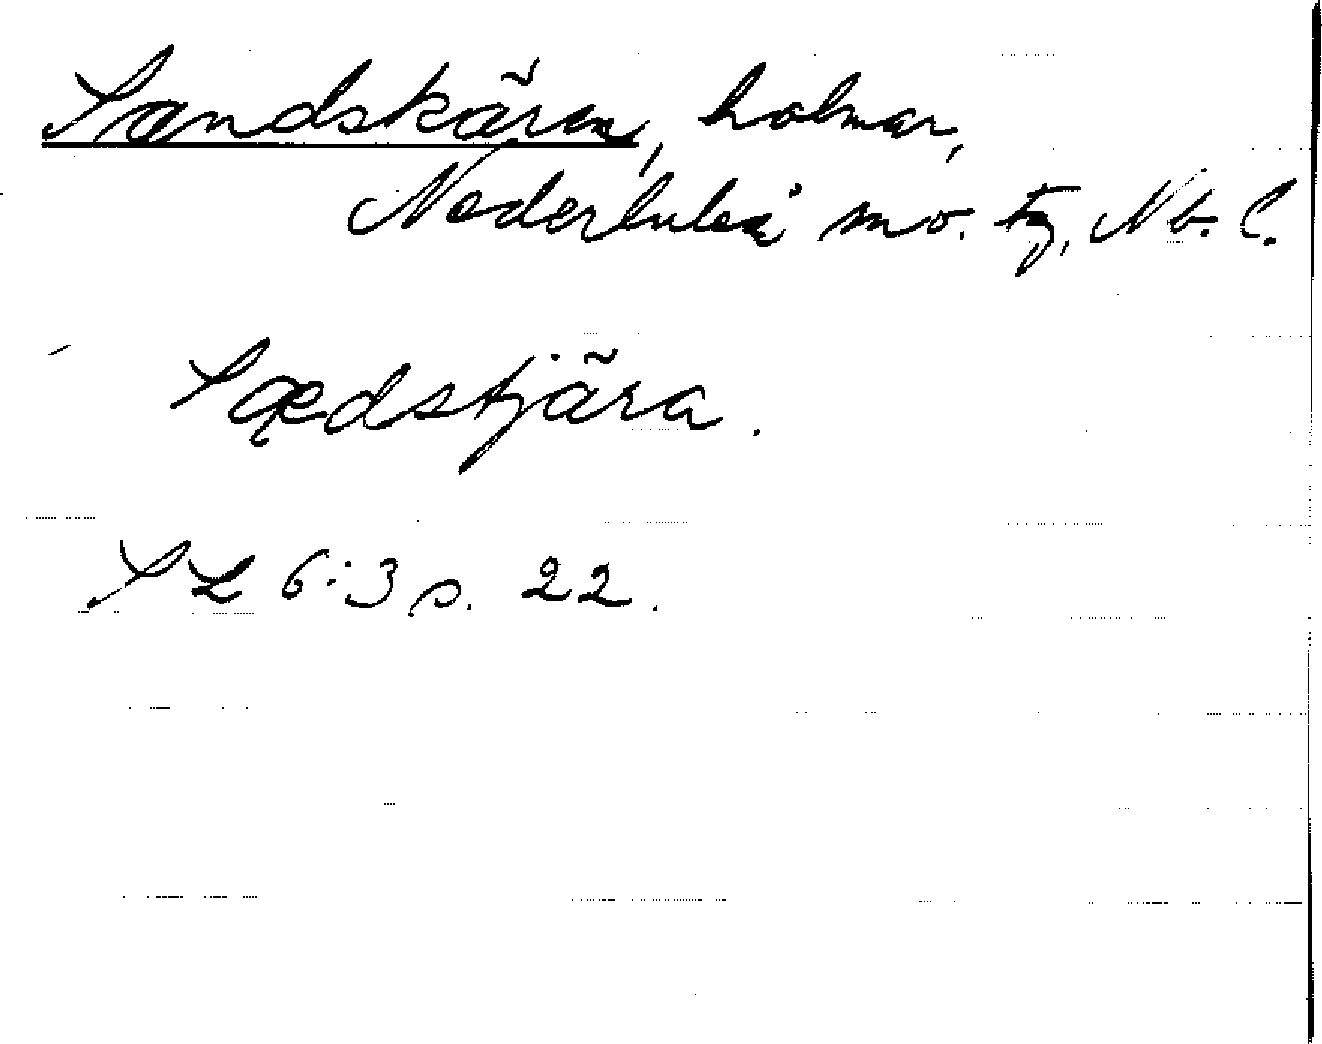 Sandskären, holmar,
Nederluleå sn o. tg, Nb. l.
Sædstjära.
SL 6:3 s. 22.